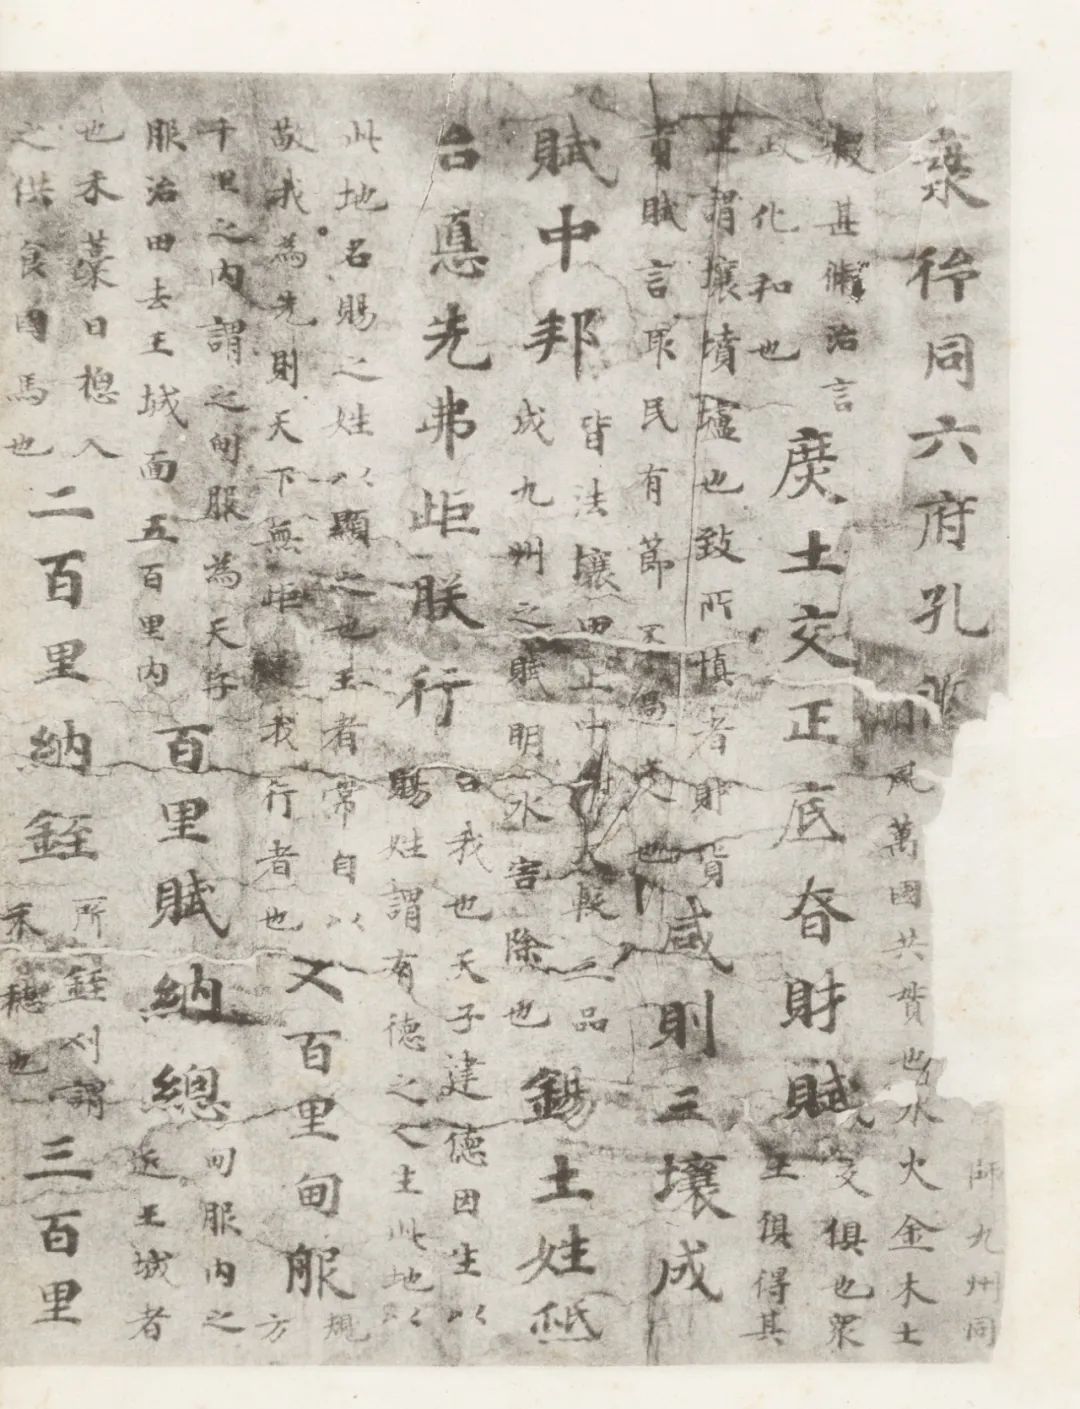 同六府孔
師九州同
風萬國共貫也水火金木土
甚脩治言
政化和也
庶土交正底眘財賦
交俱也眾
土俱得其
正謂壤墳壚也致所慎者財貨
貢賦言取民有節不過度也
咸則三壤成
賦中邦
皆法壤田上中下大較三品
成九州之賦明水害除也
錫土姓祗
台悳先弗歫朕行
台我也天子建德因生以
賜姓謂有德之人生此地以
此地名賜之姓以顯之也王者常自以
敬我為先則天下無歫我行者也
又百里甸服
規
方
千里之內謂之甸服為天子
服治田去王城面五百里內
百里賦納總
甸服內之
近王城者
也禾藁曰揔入
之供食國馬也
二百里納銍
所銍刈謂
禾穗也
三百里